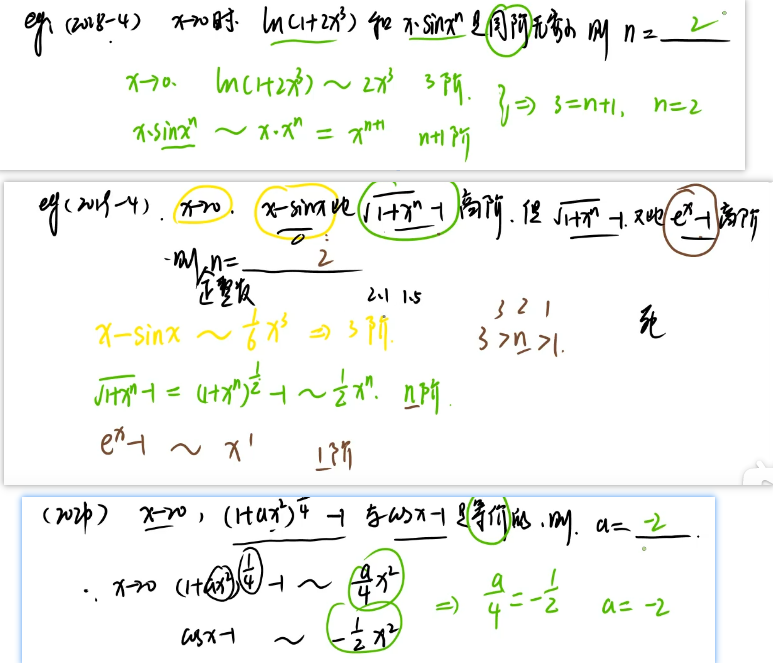 eg (2018-4) x→0时. ln(1+2x³) 和 x·sinxⁿ 是同阶无穷小 则 n = 2
x→0. ln(1+2x³) ~ 2x³ 3阶.
x·sinxⁿ ~ x·xⁿ = xⁿ⁺¹ n+1阶
} ⇒ 3=n+1, n=2
eg (2019-4). x→0. x-sinx比 √(1+xⁿ) -1 高阶. 但 √(1+xⁿ) -1. 又比 eˣ-1 高阶
0
则 n= 2
正整数
2.1 1.5
x-sinx ~ 1/6 x³ ⇒ 3阶.
3 2 1
3>n>1.
√(1+xⁿ) -1 = (1+xⁿ)^(1/2) -1 ~ 1/2 xⁿ. n阶.
eˣ-1 ~ x¹ 1阶
x→0, (1+ax²)^(1/4) -1 与cosx-1 是等价的, 则. a= -2
∴ x→0 (1+ax²)^(1/4) -1 ~ a/4 x²
cosx-1 ~ -1/2 x²
⇒ a/4 = -1/2 a= -2